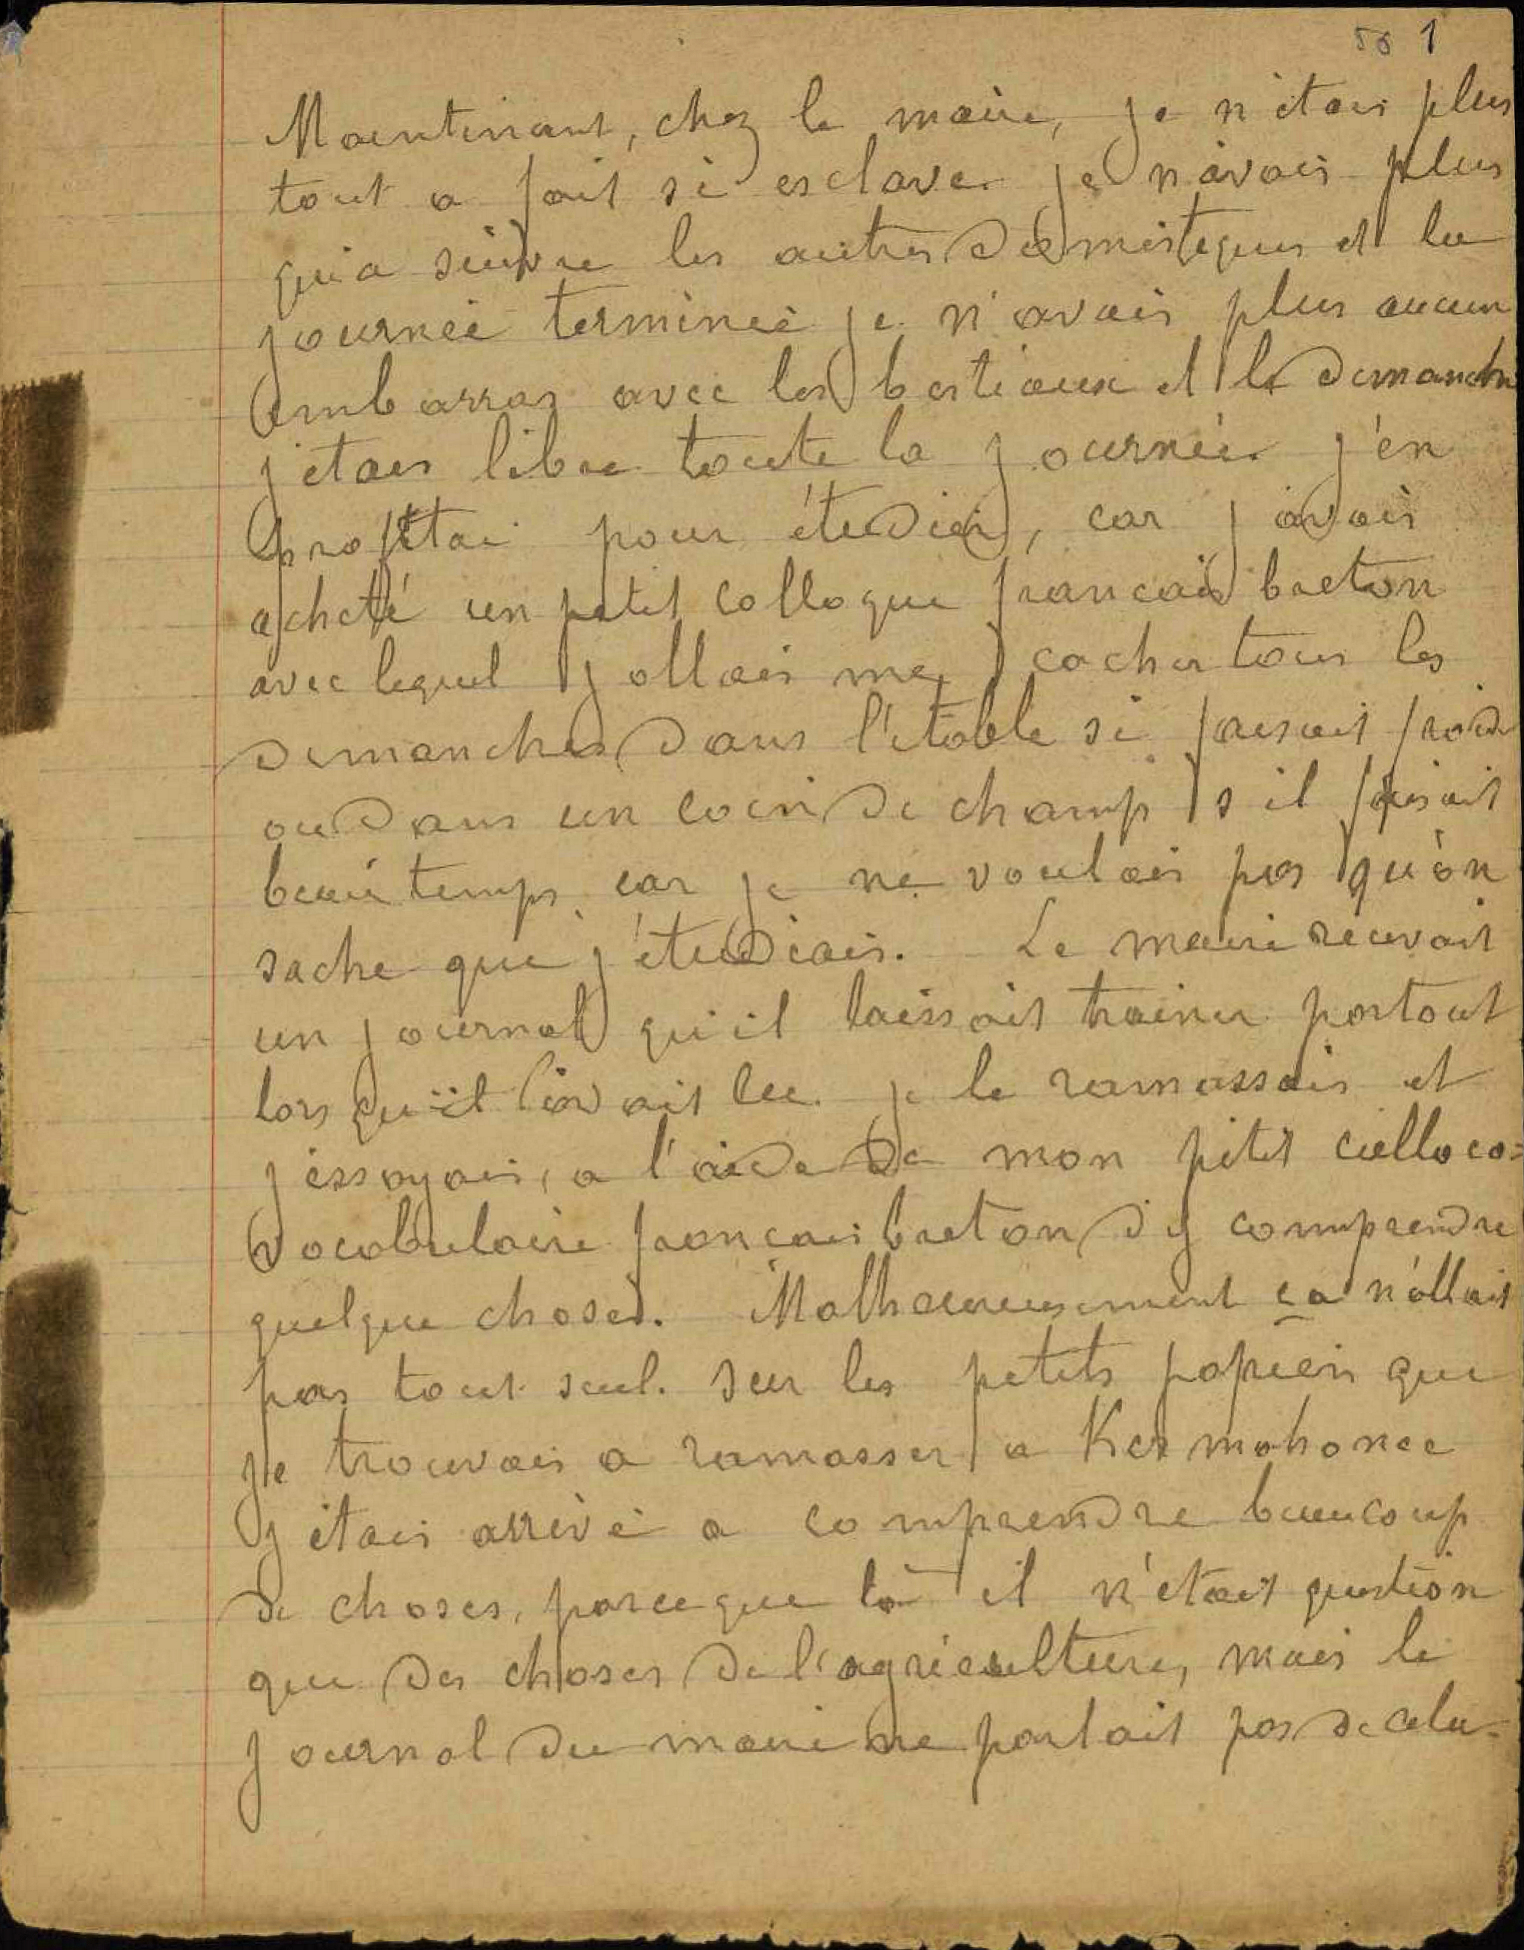 50 1
Maintenant, chez le maire, je n'étais plus
tout a fait si esclave. je n'avais plus
qu'a suivre les autres domestiques et la
journeé termineé je n'avais plus aucun
embarras avec les bestiaux et le dimanche
j'etais libre toute la journeé. j'en
profitai pour étudier, car j'avais
acheté un petit colloque francais breton
avec lequel j'allais me cacher tous les
dimanches dans l'étable si faisait froid
ou dans un coin de champ s'il faisait
beau temps. car je ne voulais pas qu'on
sache que j'étudiais. Le maire recevait
un journal qu'il laissait trainer partout
lorsqu'il l'avait lu. je le ramassais et
j'essayais, a l'aide de mon petit colloco=
vocabulaire francais breton d'y comprendre
quelque choses. Malheureusement ca n'allait
pas tout seul. sur les petits papiers que
je trouvais a ramasser a Kermahonec
j'étais arrivé a comprendre beaucoup
de choses, parceque là il n'était question
que des choses de l'agriculture, mais le
journal du maire ne parlait pas de cela.